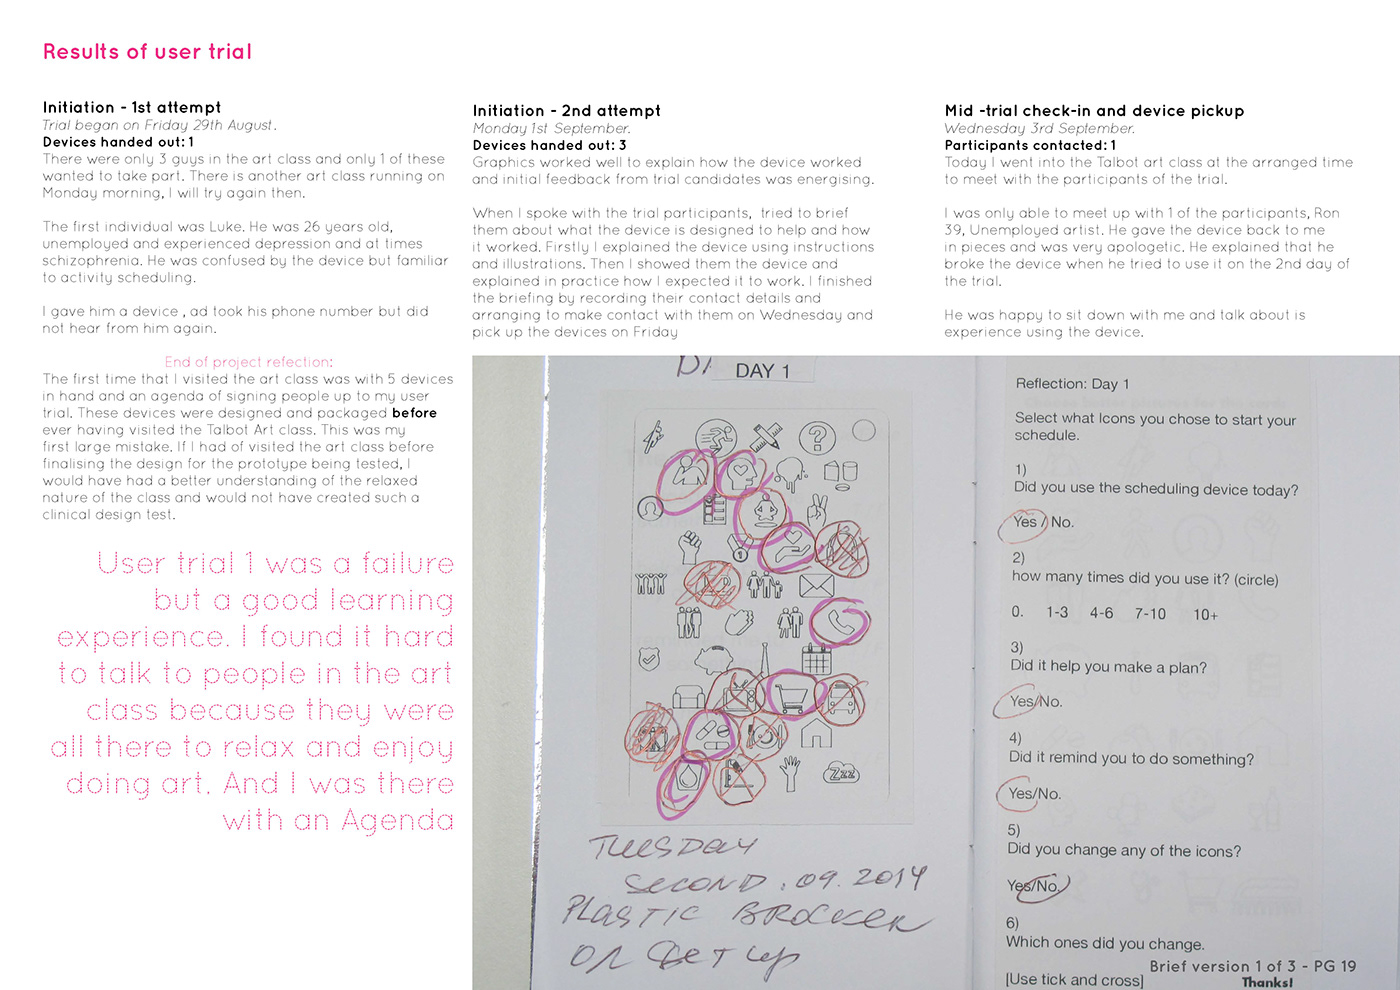 Results of user trial
Initiation - 1st attempt
Trial began on Friday 29th August.
Devices handed out: 1
There were only 3 guys in the art class and only 1 of these
wanted to take part. There is another art class running on
Monday morning, I will try again then.
The first individual was Luke. He was 26 years old,
unemployed and experienced depression and at times
schizophrenia. He was confused by the device but familiar
to activity scheduling.
I gave him a device , ad took his phone number but did
not hear from him again.
End of project refection:
The first time that I visited the art class was with 5 devices
in hand and an agenda of signing people up to my user
trial. These devices were designed and packaged before
ever having visited the Talbot Art class. This was my
first large mistake. If I had of visited the art class before
finalising the design for the prototype being tested, I
would have had a better understanding of the relaxed
nature of the class and would not have created such a
clinical design test.
User trial 1 was a failure
but a good learning
experience. I found it hard
to talk to people in the art
class because they were
all there to relax and enjoy
doing art. And I was there
with an Agenda
Initiation - 2nd attempt
Monday 1st September.
Devices handed out: 3
Graphics worked well to explain how the device worked
and initial feedback from trial candidates was energising.
When I spoke with the trial participants,  tried to brief
them about what the device is designed to help and how
it worked. Firstly I explained the device using instructions
and illustrations. Then I showed them the device and
explained in practice how I expected it to work. I finished
the briefing by recording their contact details and
arranging to make contact with them on Wednesday and
pick up the devices on Friday
Mid -trial check-in and device pickup
Wednesday 3rd September.
Participants contacted: 1
Today I went into the Talbot art class at the arranged time
to meet with the participants of the trial.
I was only able to meet up with 1 of the participants, Ron
39, Unemployed artist. He gave the device back to me
in pieces and was very apologetic. He explained that he
broke the device when he tried to use it on the 2nd day of
the trial.
He was happy to sit down with me and talk about is
experience using the device.
DAY 1
TUESDAY
SECOND. 09. 2014
PLASTIC BROCKEN
ON SET UP
Reflection: Day 1
Select what Icons you chose to start your
schedule.
1)
Did you use the scheduling device today?
Yes / No.
2)
how many times did you use it? (circle)
0. 1-3 4-6 7-10 10+
3)
Did it help you make a plan?
Yes/No.
4)
Did it remind you to do something?
Yes/No.
5)
Did you change any of the icons?
Yes/No.
6)
Which ones did you change.
[Use tick and cross]
Brief version 1 of 3 - PG 19
Thanks!